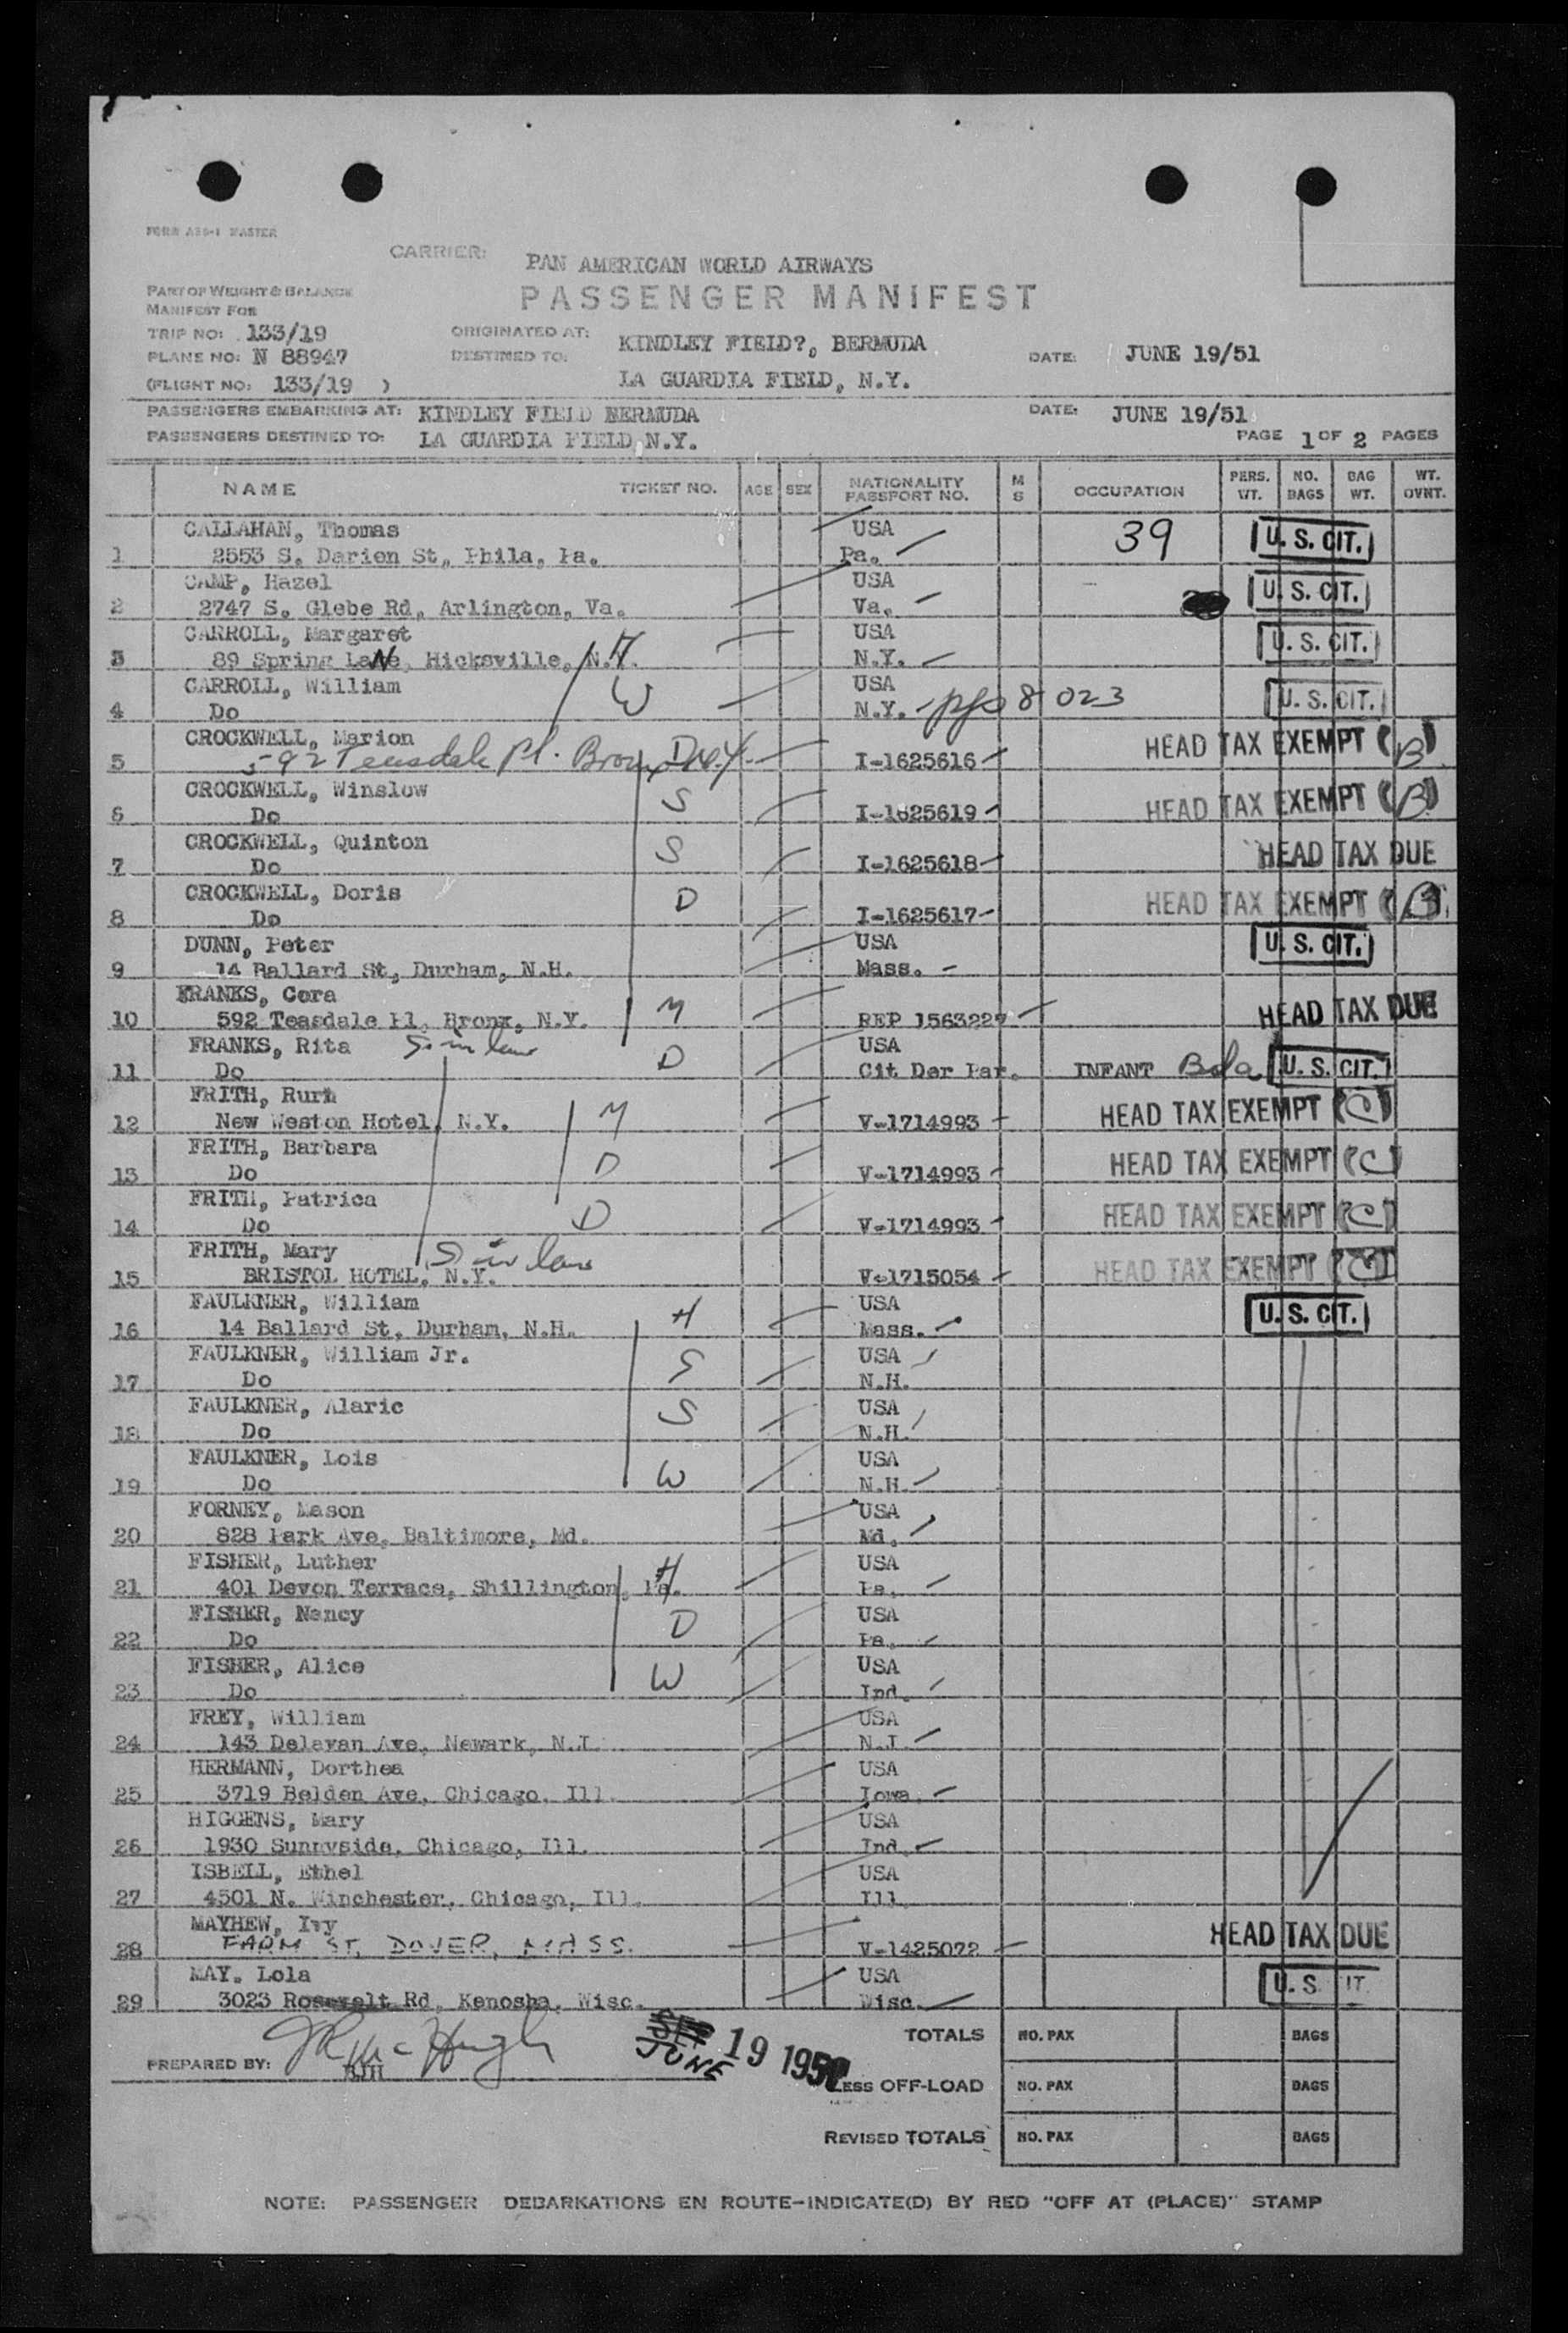 FORM ASB-1 MASTER
CARRIER: PAN AMERICAN WORLD AIRWAYS
PASSENGER MANIFEST
PART OF WEIGHT & BALANCE
MANIFEST FOR
TRIP NO: 133/19
PLANE NO: N 88947
(FLIGHT NO: 133/19 )
ORIGINATED AT: KINDLEY FIELD?, BERMUDA
DESTINED TO: LA GUARDIA FIELD, N.Y.
DATE: JUNE 19/51
PASSENGERS EMBARKING AT: KINDLEY FIELD BERMUDA DATE: JUNE 19/51
PASSENGERS DESTINED TO: LA GUARDIA FIELD N.Y. PAGE 1 OF 2 PAGES
NAME TICKET NO. AGE SEX NATIONALITY PASSPORT NO. M S OCCUPATION PERS. WT. NO. BAGS BAG WT. WT. OVNT.
CALLAHAN, Thomas USA 39 U. S. CIT.
1 2553 S. Darien St, Phila, Pa. Pa.
CAMP, Hazel USA U. S. CIT.
2 2747 S. Glebe Rd, Arlington, Va. Va.
CARROLL, Margaret USA U. S. CIT.
3 89 Spring LaNe, Hicksville, N.Y. N.Y.
CARROLL, William W USA U. S. CIT.
4 Do N.Y. 8 023
CROCKWELL, Marion HEAD TAX EXEMPT (B)
5 592 Teasdale Pl. Bronx N.Y. I-1625616
CROCKWELL, Winslow S HEAD TAX EXEMPT (B)
6 Do I-1625619
CROCKWELL, Quinton S HEAD TAX DUE
7 Do I-1625618
CROCKWELL, Doris D HEAD TAX EXEMPT (B)
8 Do I-1625617
DUNN, Peter USA U. S. CIT.
9 14 Ballard St, Durham, N.H. Mass.
FRANKS, Cora M HEAD TAX DUE
10 592 Teasdale Pl, Bronx, N.Y. REP 1563227
FRANKS, Rita S in law D USA
11 Do Cit Der Par. INFANT Bda U. S. CIT.
FRITH, Ruth M HEAD TAX EXEMPT (C)
12 New Weston Hotel, N.Y. V-1714993
FRITH, Barbara D HEAD TAX EXEMPT (C)
13 Do V-1714993
FRITH, Patrica D HEAD TAX EXEMPT (C)
14 Do V-1714993
FRITH, Mary S in law HEAD TAX EXEMPT
15 BRISTOL HOTEL, N.Y. V-1715054
FAULKNER, William H USA U. S. CIT.
16 14 Ballard St, Durham, N.H. Mass.
FAULKNER, William Jr. S USA
17 Do N.H.
FAULKNER, Alaric S USA
18 Do N.H.
FAULKNER, Lois W USA
19 Do N.H.
FORNEY, Mason USA
20 828 Park Ave, Baltimore, Md. Md.
FISHER, Luther H USA
21 401 Devon Terrace, Shillington, Pa. Pa.
FISHER, Nancy D USA
22 Do Pa.
FISHER, Alice W USA
23 Do Ind.
FREY, William USA
24 143 Delavan Ave, Newark, N.J. N.J.
HERMANN, Dorthea USA
25 3719 Belden Ave, Chicago, Ill. Iowa.
HIGGENS, Mary USA
26 1930 Sunnyside, Chicago, Ill. Ind.
ISBELL, Ethel USA
27 4501 N. Winchester, Chicago, Ill. Ill.
MAYHEW, Ivy HEAD TAX DUE
28 FARM ST, DOVER, MASS. V-1425072
MAY. Lola USA U. S. IT.
29 3023 Roosevelt Rd, Kenosha, Wisc. Wisc.
TOTALS NO. PAX BAGS
PREPARED BY: McHugh RJH SEP JUNE 19 1951
LESS OFF-LOAD NO. PAX BAGS
REVISED TOTALS NO. PAX BAGS
NOTE: PASSENGER DEBARKATIONS EN ROUTE-INDICATE(D) BY RED "OFF AT (PLACE)" STAMP